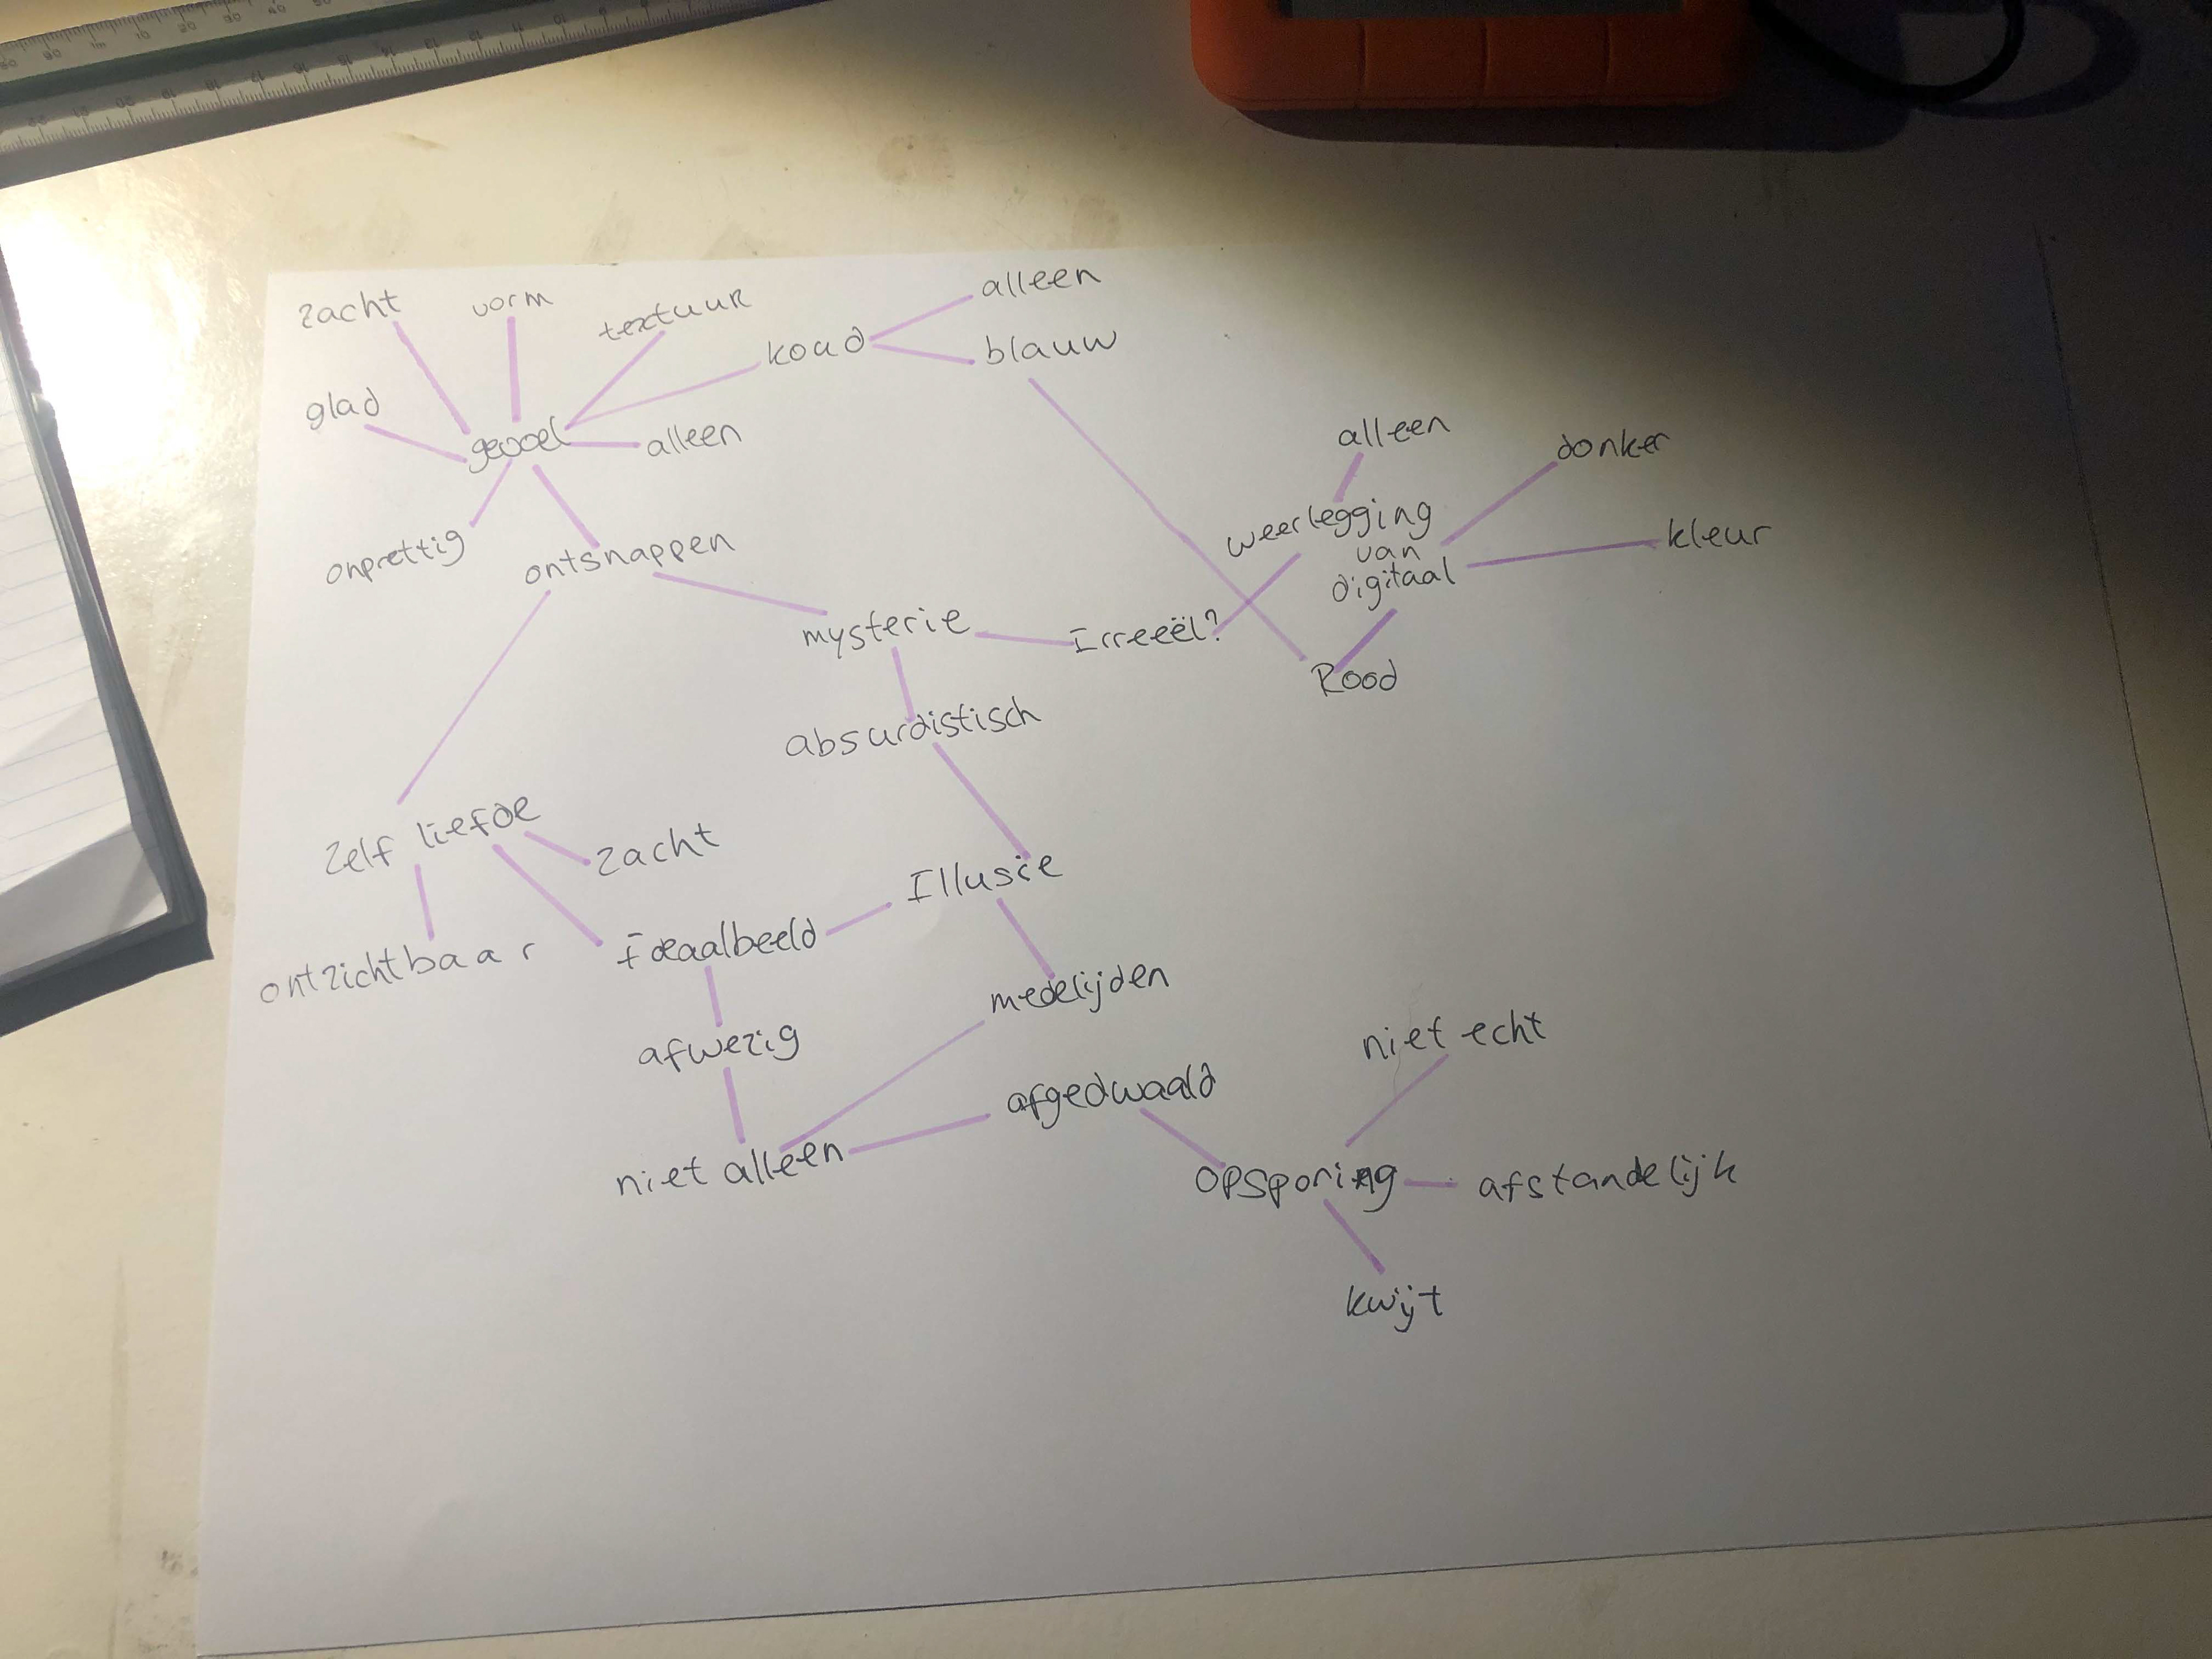 zacht
vorm
textuur
koud
alleen
blauw
glad
gevoel
alleen
onprettig
ontsnappen
alleen
donker
weerlegging
van
digitaal
kleur
mysterie
Irreeël?
Rood
absurdistisch
Zelf liefde
zacht
Illusie
ontzichtbaar
Ideaalbeeld
medelijden
afwezig
niet echt
afgedwaald
niet alleen
opsporing
afstandelijk
kwijt